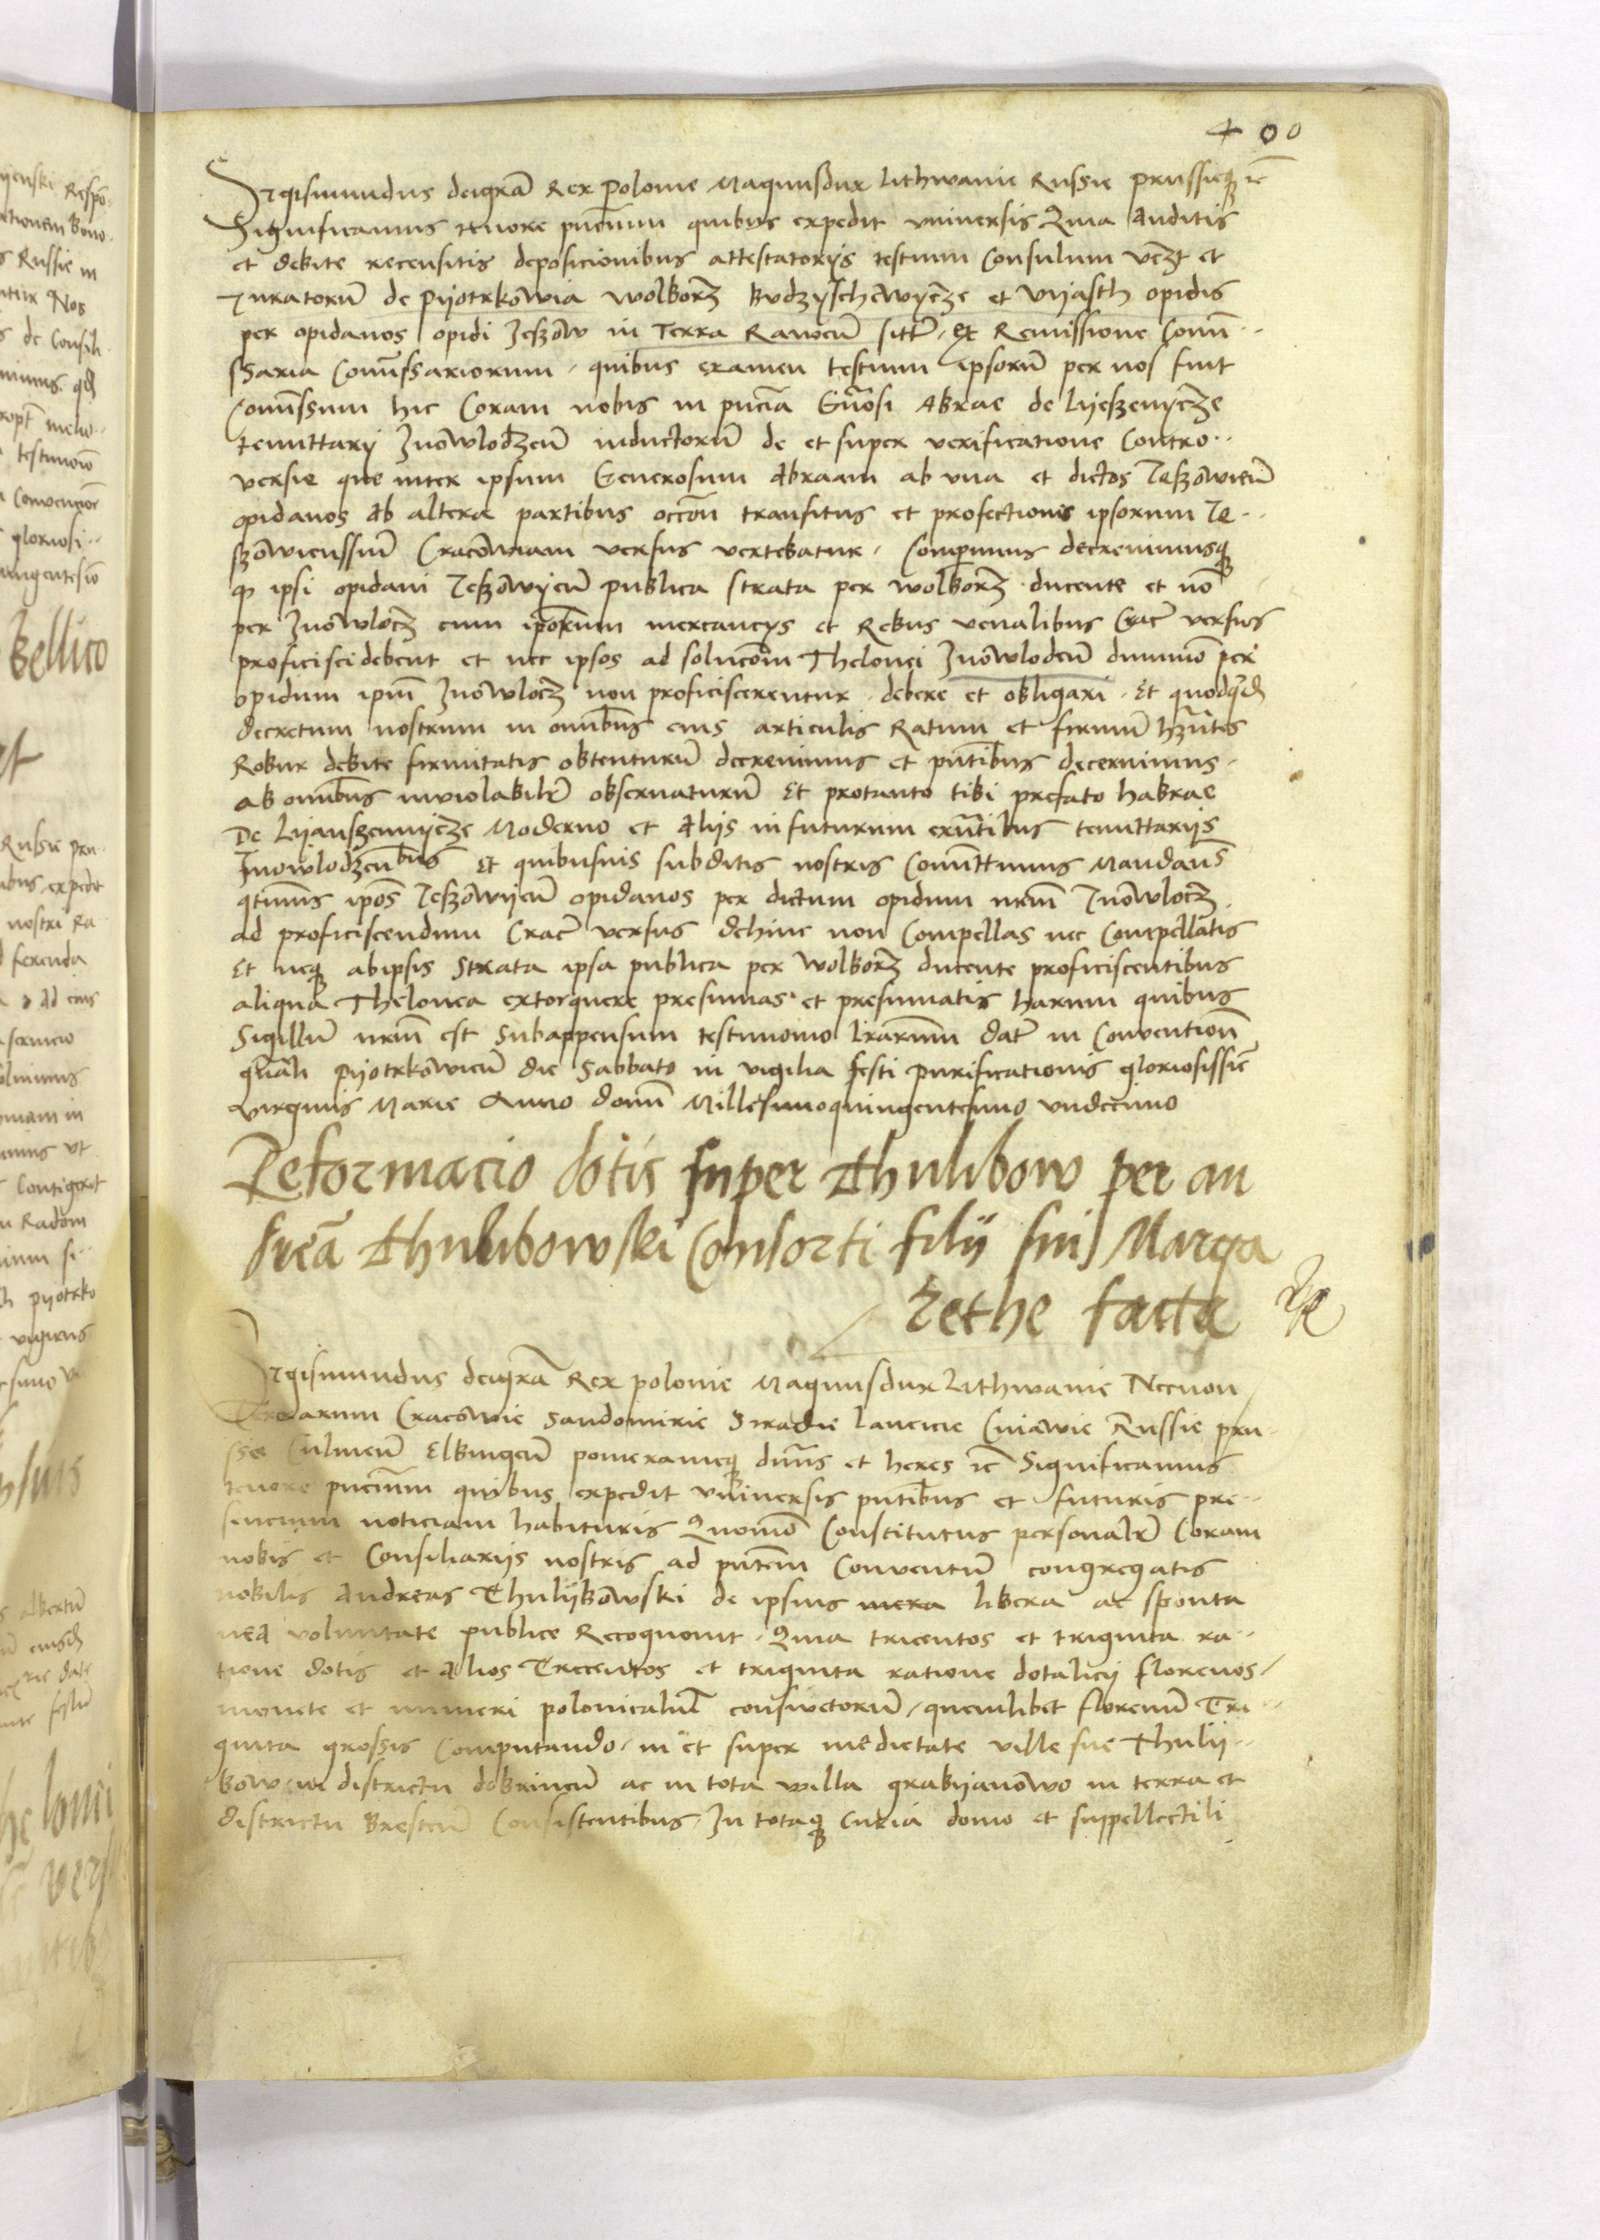 400
Sigismundus dei grā Rex polonie Magnus dux Lithwanie Russie prussieq̃ ꝛc̄
Significamus tenore pñcium quibus expedit vniversis Quia Auditis
et debite recensitis deposicionibus attestatorijs testium Consulum vcz̃t et
Juratorū de pijotrkowia wolborz̃ Budzijschewijcze et vijasth opidis
per opidanos opidi Jeszow in Terra Ravceñ sitt̃ Et Remissione Comĩ
ssaria Comĩssariorum quibus examen testium ipsorū per nos fuit
Comĩssum hic Coram nobis in pñcia Gñosi Abrae de Lijeszenijcze
tenuttarij Jnowlodzceñ inductorū de et super verificatione Contro
versie que inter ipsum Generosum Abraam ab vna et dictos Jeszowieñ
opidanos Ab altera partibus occc̄oñ transitus et profectionis ipsorum Je
szowienssiū Cracowiam versus vertebatur Comperimus decrevimusq̃
qꝫ ipsi opidani Jeszowijeñ publica strata per wolborz̃ ducente et nō
per Jnowlocz̃ cum ip̃orum mercancijs et Rebus venalibus Crac̃ versus
proficisci debent et nec ipsos ad soluc̄om Thelonei Jnowlodceñ dummō per
opidum ip̃m Jnowlocz̃ non proficiscerentur debere et obligari Et quodq̃d̃
decretum nostrum in omĩbus eius articulis Ratum et firmū hñtes
Robur debite firmitatis obtenturū decrevimus et pñtibus decernimus
ab omĩbus inviolabilr̃ observaturū Et protanto tibi prefato habrae
De Lijanszennijcze Moderno et Alijs in futurum exñtibus tenuttarijs
Jnowlodzceñbus Et quibusvis subditis nostris Comĩttimus Mandañs
qtinus ip̃os Jeszowijeñ opidanos per dictum opidum nr̃m Jnowlocz̃
ad proficiscendum Crac̃ versus dehinc non Compellas nec Compellatis
Et neq̃ ab ipsis strata ipsa publica per wolborz̃ ducente proficiscentibus
aliqua Thelonea extorquere presumas et presumatis harum quibus
Sigillū nr̃m est Subappensum testimonio lr̃arum dat̃ in Conventioñ
gñali pijotrkowieñ die Sabbato in vigilia festi purificationis gloriosissie
virginis Marie Anno domĩ Millesimoquingentesimo vndecimo
Reformacio dotis super Thulibow per an
dreā Thulibowski Consorti filij sui Marga
rethe facta Re
Sigismundus dei grā Rex polonie Magnus dux Lithwanie Necnon
Terrarum Cracowie Sandomirie Siradie Lancicie Cuiawie Russie pru
ssie Culmeñ Elbingeñ pomeranieq̃ dñus et heres ꝛc̄ Significamus
tenore pñcium quibus expedit vniversis pñtibus et futuris pre
sencium noticiam habituris Quomō Constitutus personalr̃ Coram
nobis et Consiliarijs nostris ad pñtem Conventū congregatis
nobilis Andreas Thulijbowski de ipsius mera libera ac sponta
nea voluntate publice Recognovit Quia tricentos et triginta ra
tione dotis et Alios Trecentos et triginta ratione dotalicij florenos
monete et numeri polonicaliū consuetorū quemlibet florenū Tri
ginta grossis Computando in et super medietate ville sue Thulij
bow in districtu dobrineñ ac in tota villa grabijanowo in terra et
districtu Bresteñ Consistentibus In totaq̃ Curia domo et suppellectili